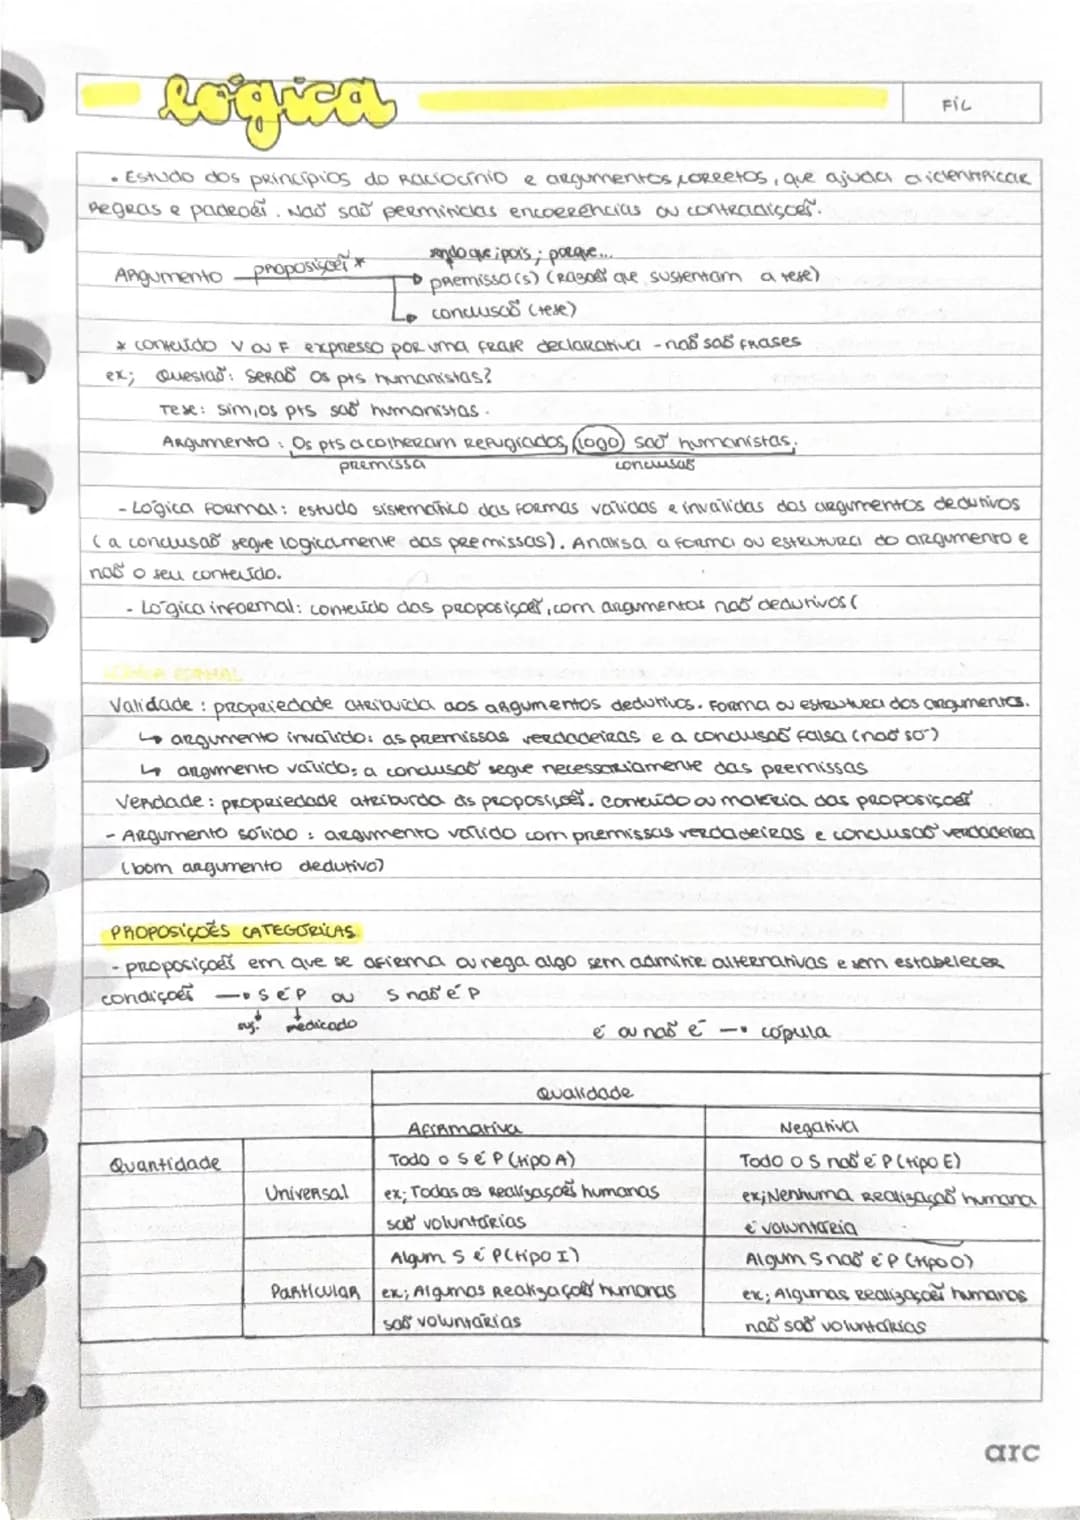 lógica
FIL
• Estudo dos princípios do raciocínio e argumentos corretos, que ajuda a identificar
regras e padrões. Não são permitidas encoerências ou contradições.
sendo que; pois; porque...
Argumento proposições* premissa(s) (razões que sustentam a tese)
conclusão (tese)
* conteúdo V ou F expresso por uma frase declarativa - não são frases
ex; Questão: Serão os pts humanistas?
Tese: sim, os pts são humanistas.
Argumento: Os pts acolheram refugiados, logo são humanistas.
premissa conclusão
- Lógica formal: estudo sistemático das formas válidas e inválidas dos argumentos dedutivos
(a conclusão segue logicamente das premissas). Analisa a forma ou estrutura do argumento e
não o seu conteúdo.
- Lógica informal: conteúdo das proposições, com argumentos não dedutivos (
LÓGICA FORMAL
Validade: propriedade atribuída aos argumentos dedutivos. Forma ou estrutura dos argumentos.
↳ argumento inválido: as premissas verdadeiras e a conclusão falsa (não só)
↳ argumento válido: a conclusão segue necessariamente das premissas
Verdade: propriedade atribuída ás proposições. Conteúdo ou matéria das proposições
- Argumento sólido: argumento válido com premissas verdadeiras e conclusão verdadeira
(bom argumento dedutivo)
PROPOSIÇÕES CATEGÓRICAS
- proposições em que se afirma ou nega algo sem admitir alternativas e sem estabelecer
condições → S é P ou S não é P
suj. predicado
é ou não é → cópula
Qualidade
Afirmativa Negativa
Quantidade Todo o S é P (tipo A) Todo o S não é P (tipo E)
Universal ex; Todas as realizações humanas ex; Nenhuma realização humana
são voluntárias é voluntária
Algum S é P (tipo I) Algum S não é P (tipo O)
Particular ex; Algumas realizações humanas ex; Algumas realizações humanas
são voluntárias não são voluntárias
arc